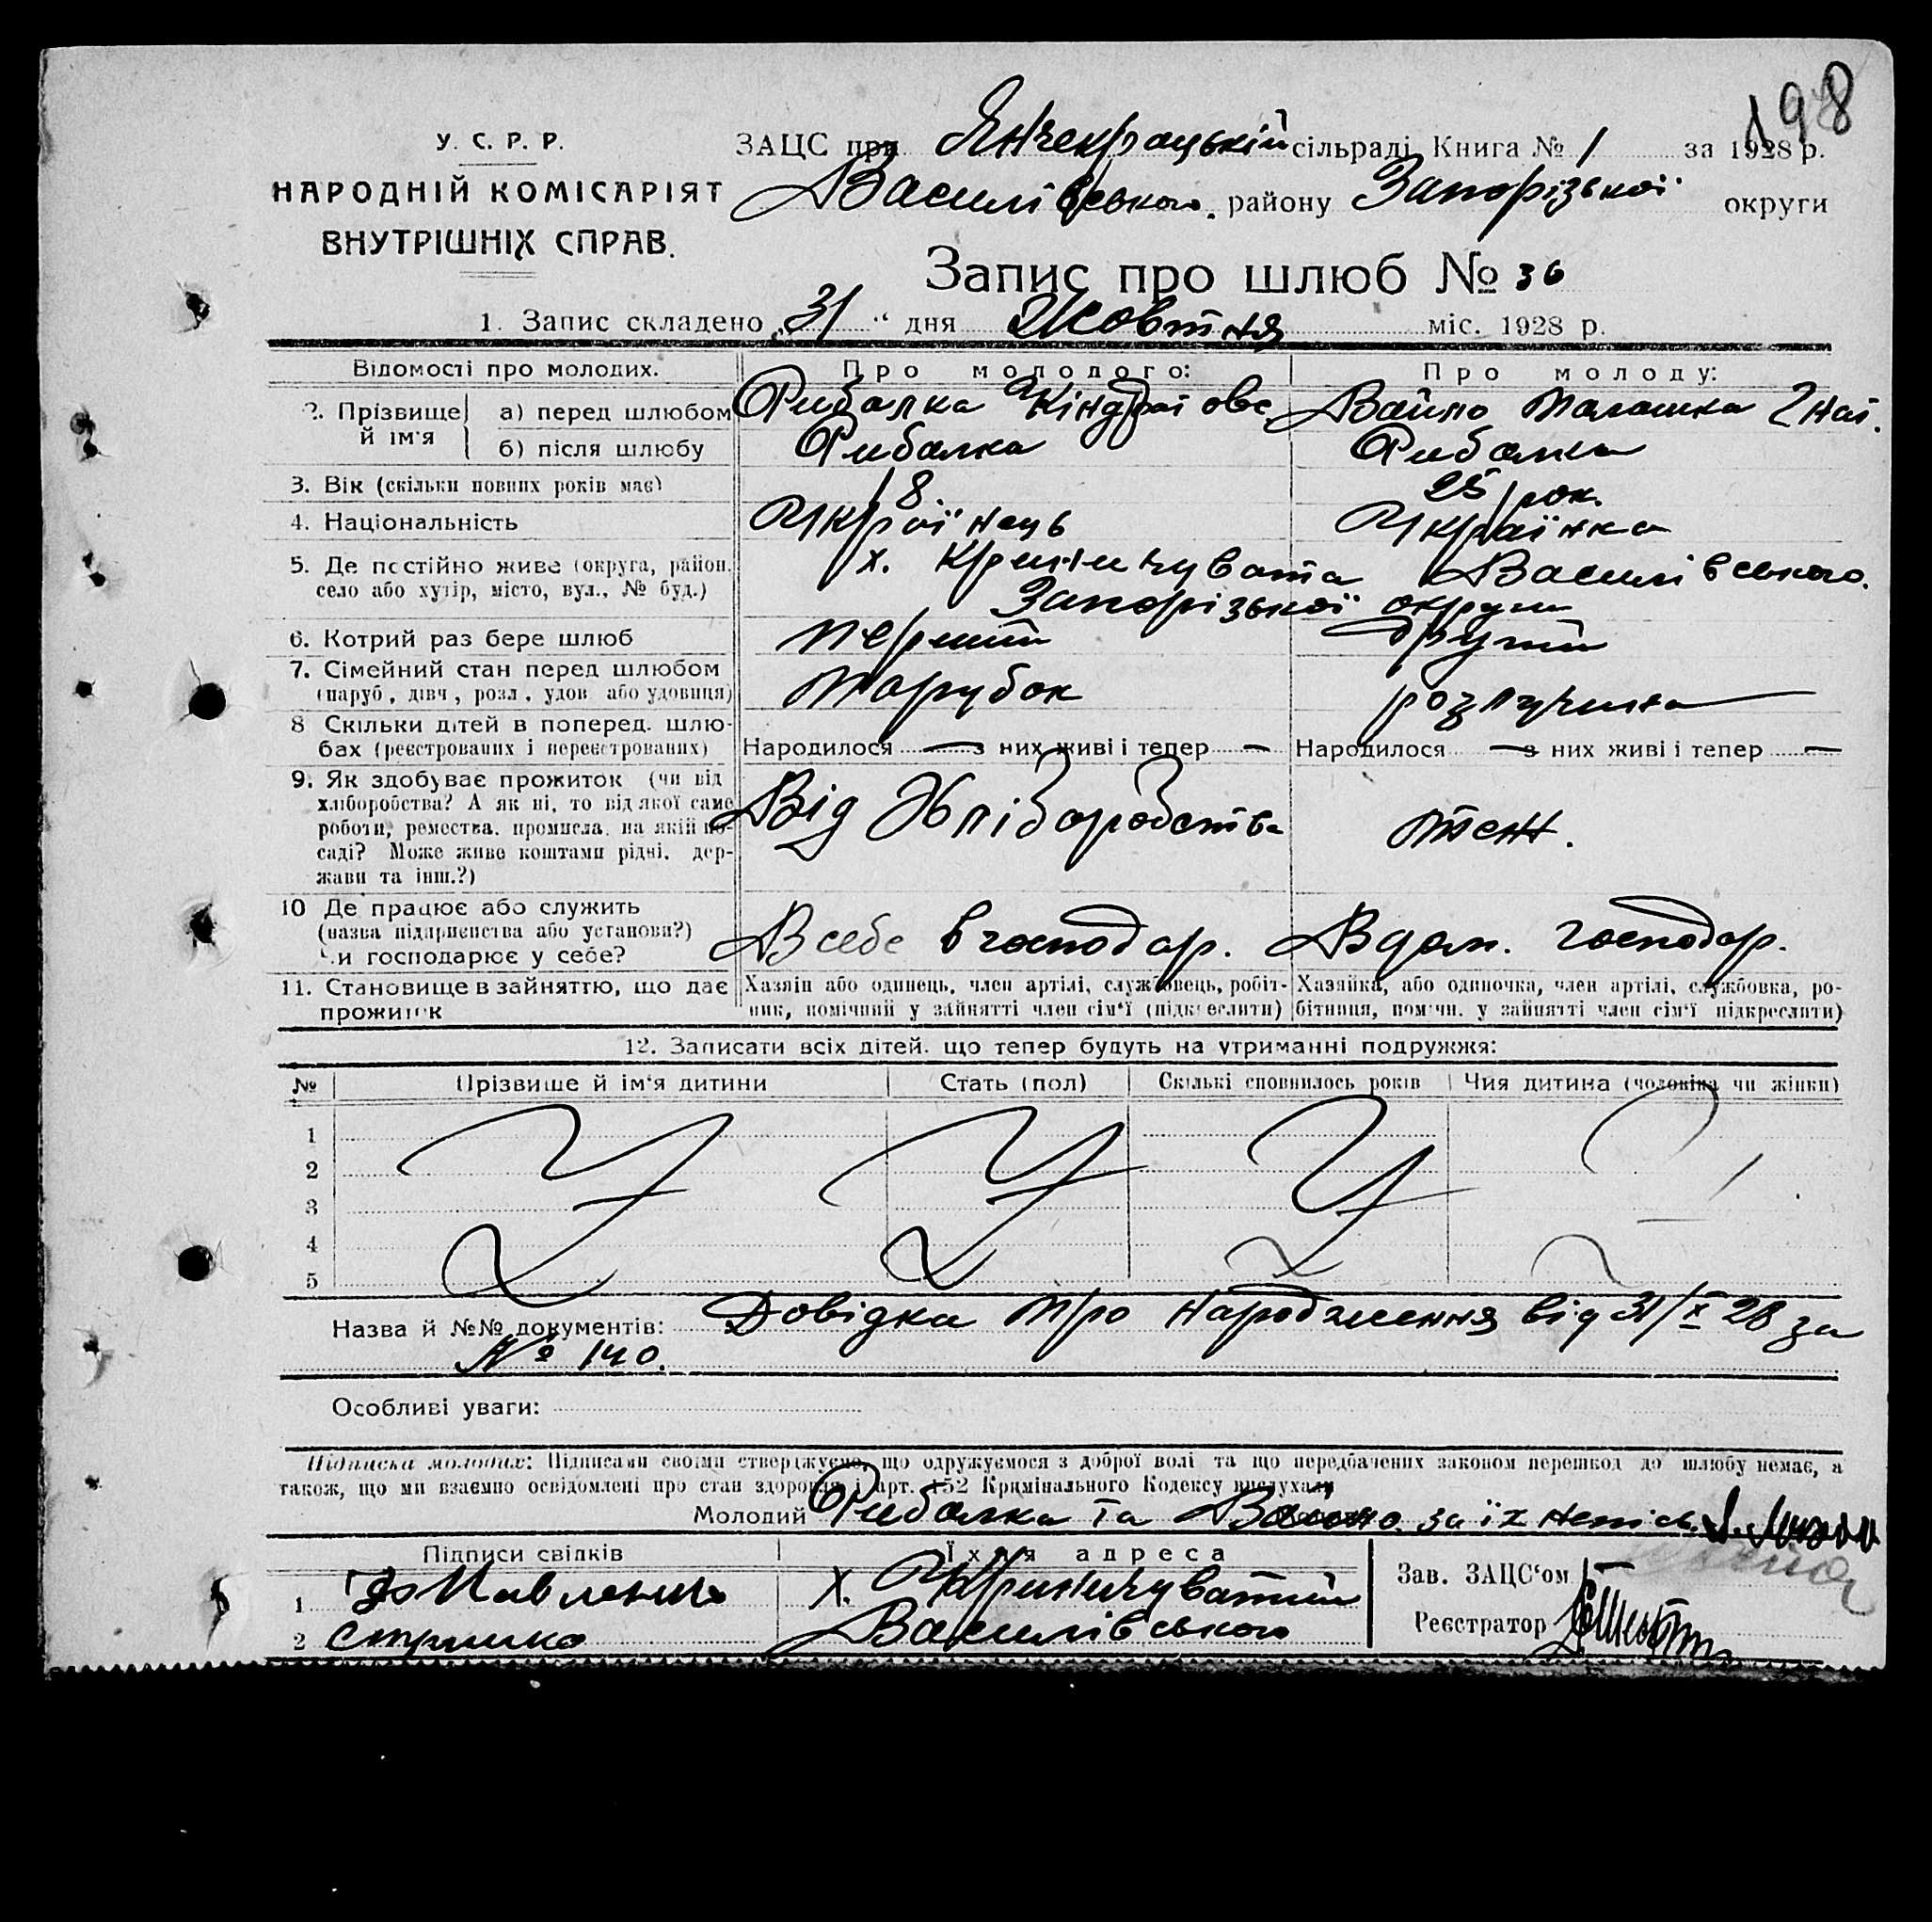 198
У. С. Р. Р.
НАРОДНІЙ КОМІСАРІЯТ
ВНУТРІШНІХ СПРАВ.
ЗАЦС при Янчекрацькій сільраді Книга № 1 за 1928 р.
Василівського району Запорізької округи
Запис про шлюб № 36
1. Запис складено „31“ дня Жовтня міс. 1928 р.
Відомості про молодих. Про молодого: Про молоду:
2. Прізвище й ім'я а) перед шлюбом Рибалка Кіндрат Палашка Гнат.
б) після шлюбу Рибалка Рибалка
3. Вік (скільки повних років має) 18 25 рок.
4. Національність Українець Українка
5. Де постійно живе (округа, район, х. Криничувата Василівського.
село або хутір, місто, вул., № буд.) Запорізької округи
6. Котрий раз бере шлюб перший другий
7. Сімейний стан перед шлюбом
(паруб., дівч., розл., удов. або удовиця) парубок розлучена
8 Скільки дітей в поперед. шлю-
бах (реєстрованих і нереєстрованих) Народилося — з них живі і тепер — Народилося — з них живі і тепер —
9. Як здобуває прожиток (чи від
хліборобства? А як ні, то від якої саме
роботи, ремества, промисла, на якій по-
саді? Може живе коштами рідні, дер-
жави та інш.?) Від Хліборобства теж.
10 Де працює або служить
(назва підприємства або установи?)
Чи господарює у себе? В себе в господар. В дом. господар.
11. Становище в зайняттю, що дає Хазяїн або одинець, член артілі, службовець, робіт- Хазяйка, або одиночка, член артілі, службовка, ро-
прожиток ник, помічний у зайнятті член сім'ї (підкреслити) бітниця, помічн. у зайнятті член сім'ї підкреслити)
12. Записати всіх дітей, що тепер будуть на утриманні подружжя:
№ Прізвище й ім'я дитини Стать (пол) Скількі сповнилось років Чия дитина (чоловіка чи жінки)
1
2
3
4
5
Назва й №№ документів: Довідка про народження від 31/X 28 за
№ 140.
Особливі уваги:
Підписка молодих: Підписами своїми стверджуємо, що одружуємося з доброї волі та що передбачених законом перешкод до шлюбу немає, а
також, що ми взаємно освідомлені про стан здоровля і арт. 152 Кримінального Кодексу вислухали
Молодий Рибалка та за їх
Підписи свідків Їхня адреса
1 Павленко х. Криничуватий
2 Василівського
Зав. ЗАЦС'ом
Реєстратор